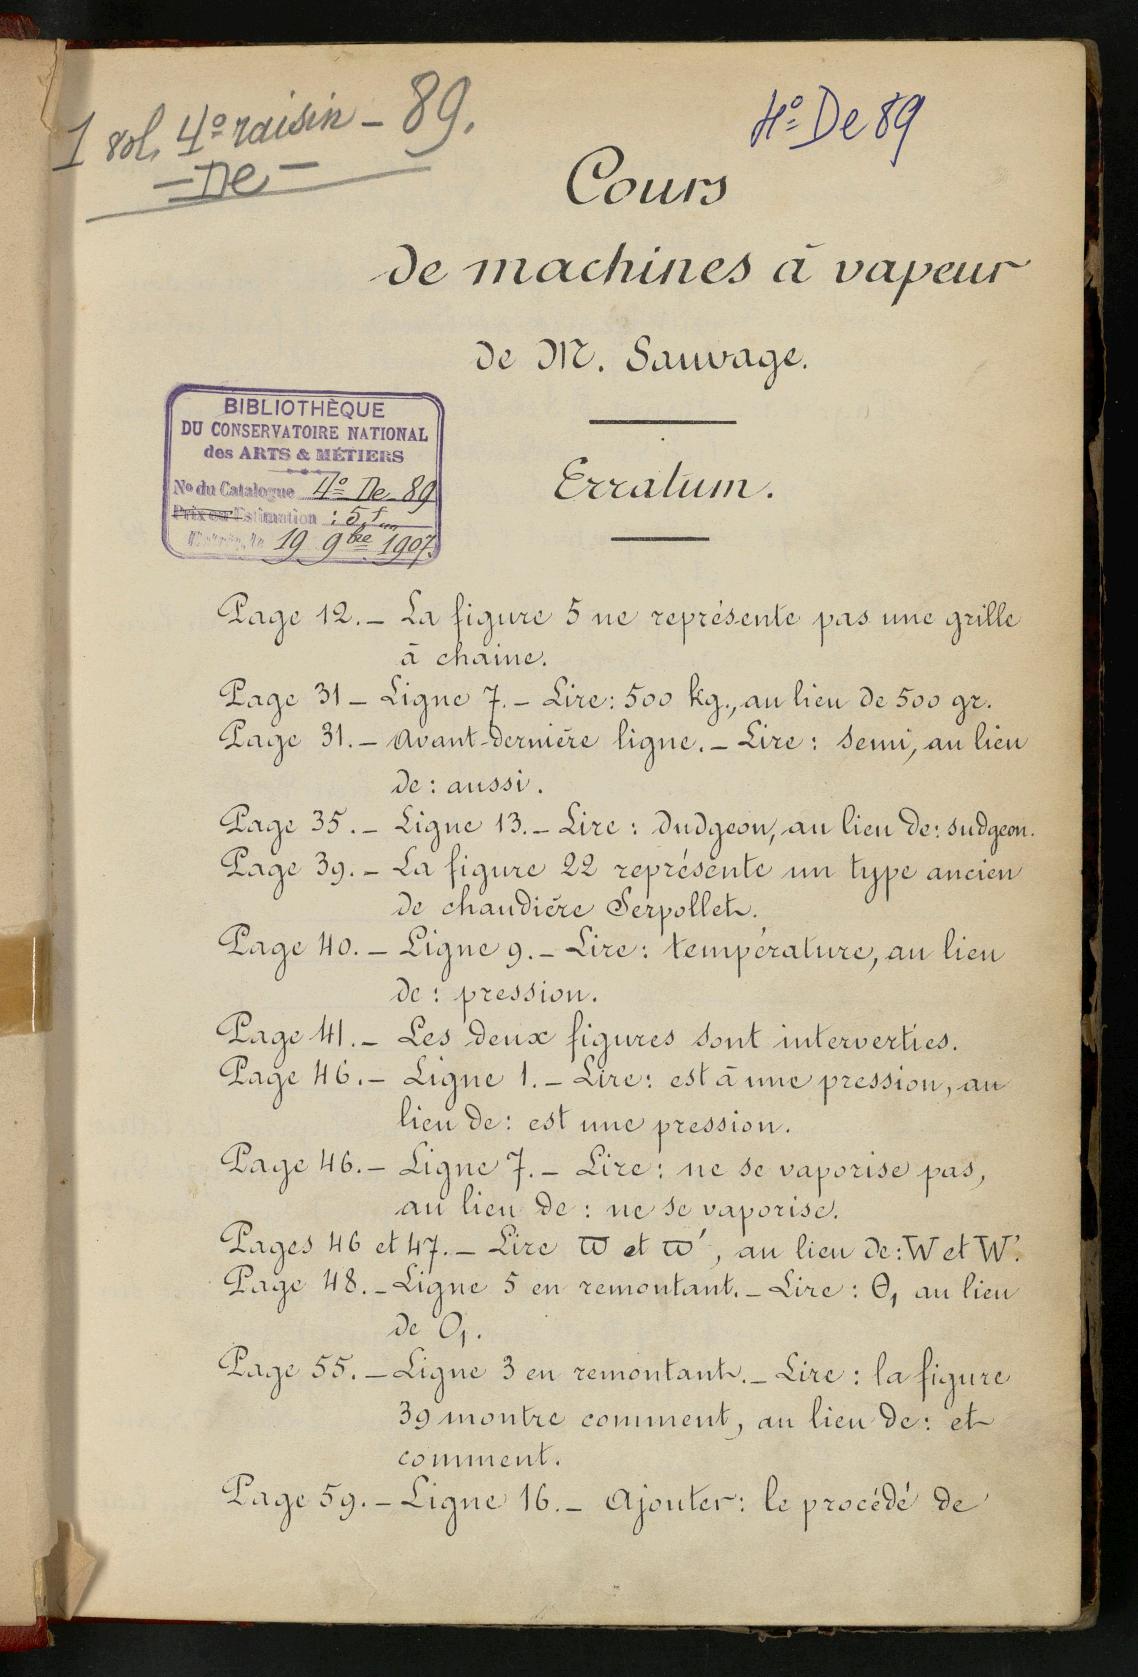 1 vol. 4º raisin – 89.
– De –
4º De 89
Cours
de machines à vapeur
de M. Sauvage.
BIBLIOTHÈQUE
DU CONSERVATOIRE NATIONAL
des ARTS & MÉTIERS
Nº du Catalogue 4º De 89
Prix ou Estimation : 5f
19 9bre 1907.
Erratum.
Page 12. – La figure 5 ne représente pas une grille
à chaine.
Page 31 – Ligne 7. – Lire : 500 kg., au lieu de 500 gr.
Page 31. – Avant-dernière ligne. – Lire : semi, au lieu
de : aussi.
Page 35. – Ligne 13. – Lire : Dudgeon, au lieu de : sudgeon.
Page 39. – La figure 22 représente un type ancien
de chaudière Serpollet.
Page 40. – Ligne 9. – Lire : température, au lieu
de : pression.
Page 41. – Les deux figures sont interverties.
Page 46. – Ligne 1. – Lire : est à une pression, au
lieu de : est une pression.
Page 46. – Ligne 7. – Lire : ne se vaporise pas,
au lieu de : ne se vaporise.
Pages 46 et 47. – Lire ϖ et ϖ', au lieu de : W et W'.
Page 48. – Ligne 5 en remontant. – Lire : θ₁ au lieu
de O₁.
Page 55. – Ligne 3 en remontant. – Lire : la figure
39 montre comment, au lieu de : et
comment.
Page 59. – Ligne 16. – Ajouter : le procédé de